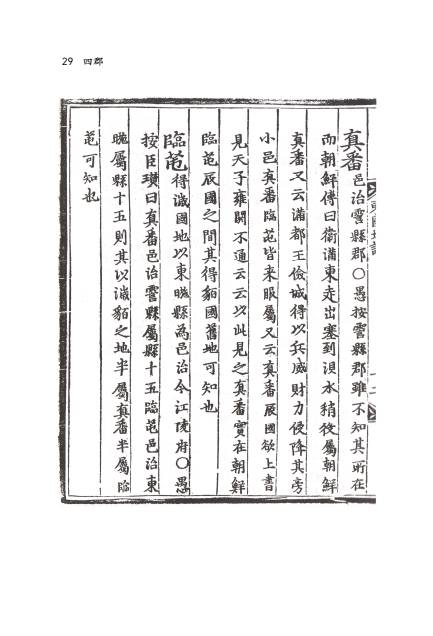 29 四郡
真番邑治霅縣郡○愚按霅縣郡雖不知其所在
而朝鮮傳曰衛滿東走出塞到浿水稍役屬朝鮮
真番又云滿都王儉城得以兵威財力侵降其旁
小邑真番臨芚皆来服屬又云真番辰國欲上書
見天子雍閼不通云云以此見之真番實在朝鮮
臨芚辰國之間其得貊國舊地可知也
臨芚得濊國地以東暆縣為邑治今江陵府○愚
按臣瓚曰真番邑治霅縣屬縣十五臨芚邑治東
暆屬縣十五則其以濊貊之地半屬真番半屬臨
芚可知也